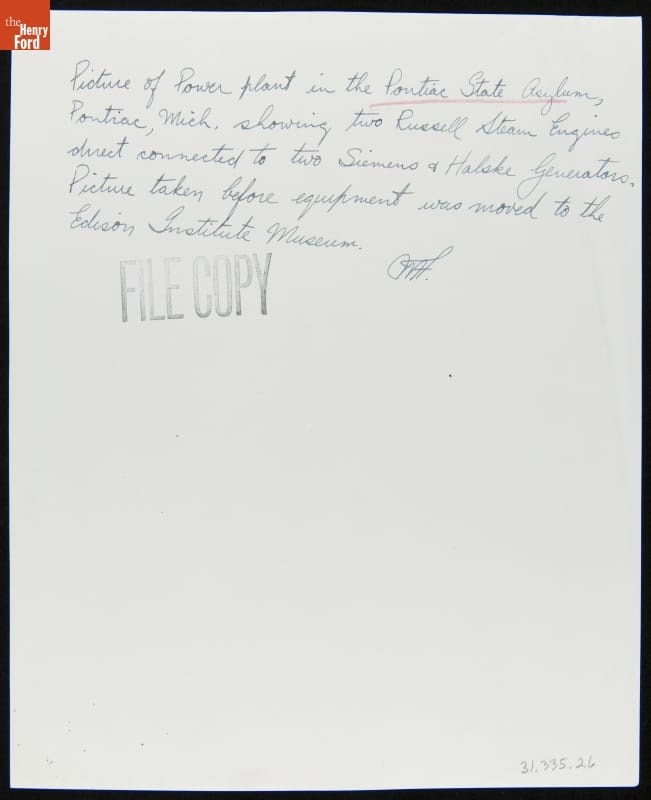 the
Henry
Ford
Picture of Power plant in the Pontiac State Asylum,
Pontiac, Mich. showing two Russell Steam Engines
direct connected to two Siemens & Halske Generators.
Picture taken before equipment was moved to the
Edison Institute Museum.
FILE COPY
31.335.26